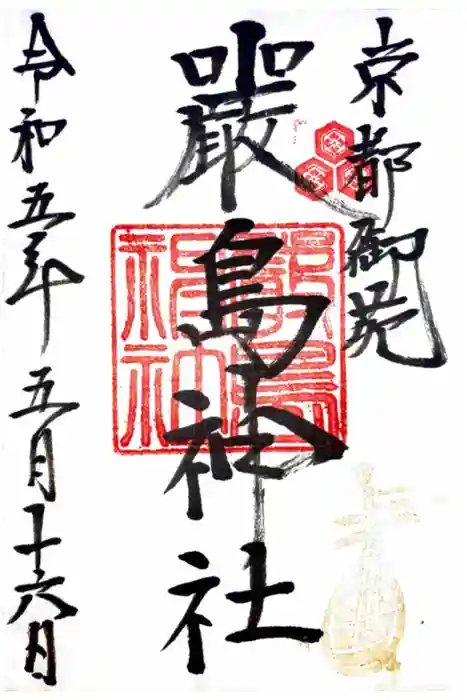 京都御苑
嚴島神社
令和五年五月十六日